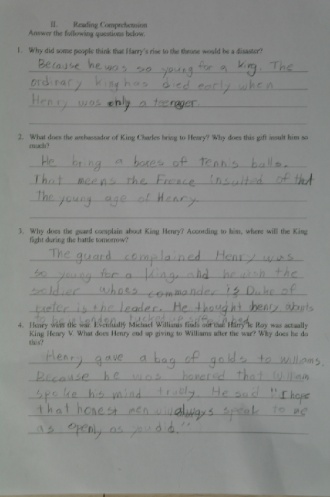 II. Reading Comprehension
Answer the following questions below.
1. Why did some people think that Harry's rise to the throne would be a disaster?
Because he was so young for a king. The
ordinary king has died early when
Henry was only a teenager.
2. What does the ambassador of King Charles bring to Henry? Why does this gift insult him so
much?
He bring a boxes of Tennis balls.
That means the France insulted of that
the young age of Henry.
3. Why does the guard complain about King Henry? According to him, where will the King
fight during the battle tomorrow?
The guard complained Henry was
so young for a king. And he wish the
soldier whoes commander is Duke of
is the leader. He thought henry wants
to be
4. Henry won the war. Eventually Michael Williams finds out that Harry le Roy was actually
King Henry V. What does Henry end up giving to Williams after the war? Why does he do
this?
Henry gave a bag of golds to Williams.
Because he was honored that William
spoke his mind truely. He said "I hope
that honest men always speak to me
as openly as you did."